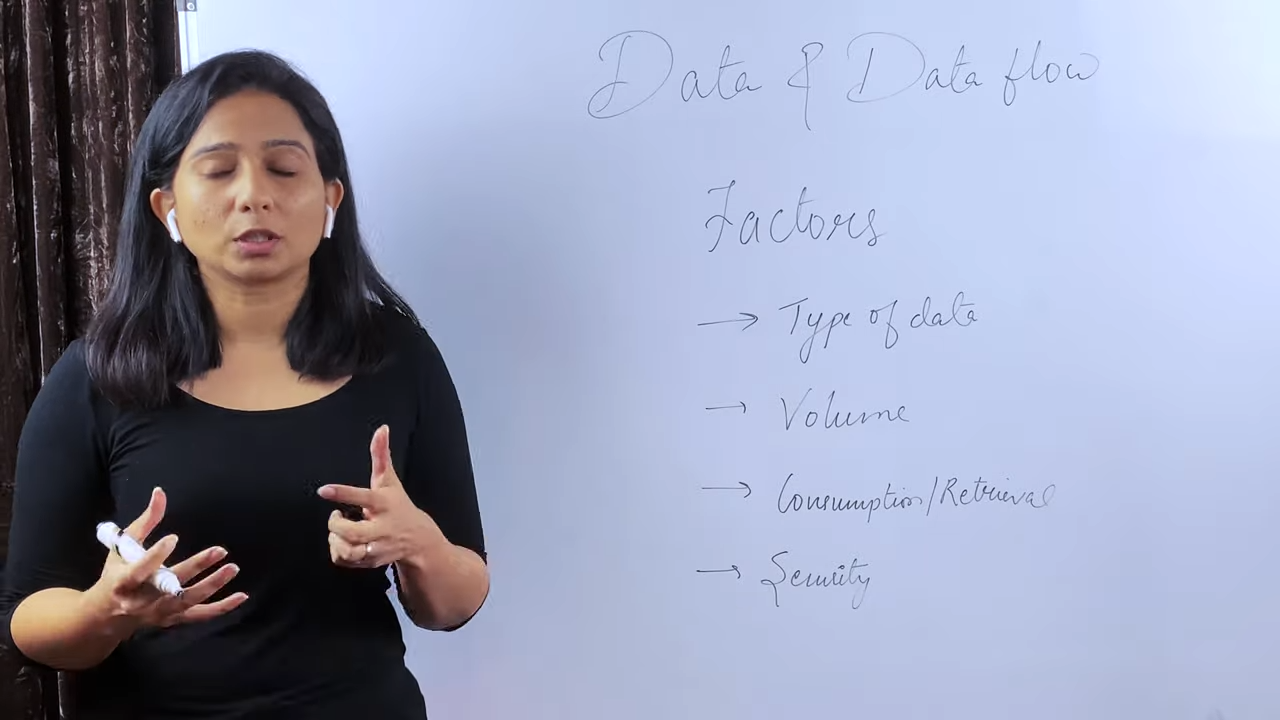 Data & Data flow
Factors
→ Type of data
→ Volume
→ Consumption/Retrieval
→ Security